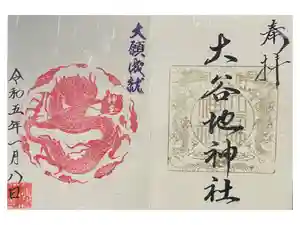 奉拝
大谷地神社
大願成就
令和五年一月八日